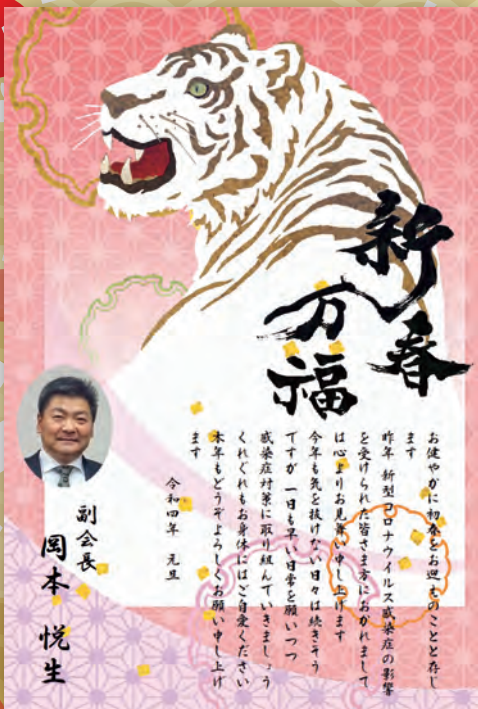 新春
万福
お健やかに初春をお迎えのことと存じ
ます
昨年 新型コロナウイルス感染症の影響
を受けられた皆さま方におかれまして
は心よりお見舞い申し上げます
今年も気を抜けない日々は続きそう
ですが 一日も早い日常を願いつつ
感染症対策に取り組んでいきましょう
くれぐれもお身体にはご自愛ください
本年もどうぞよろしくお願い申し上げ
ます
令和四年 元旦
副会長
岡本 悦生